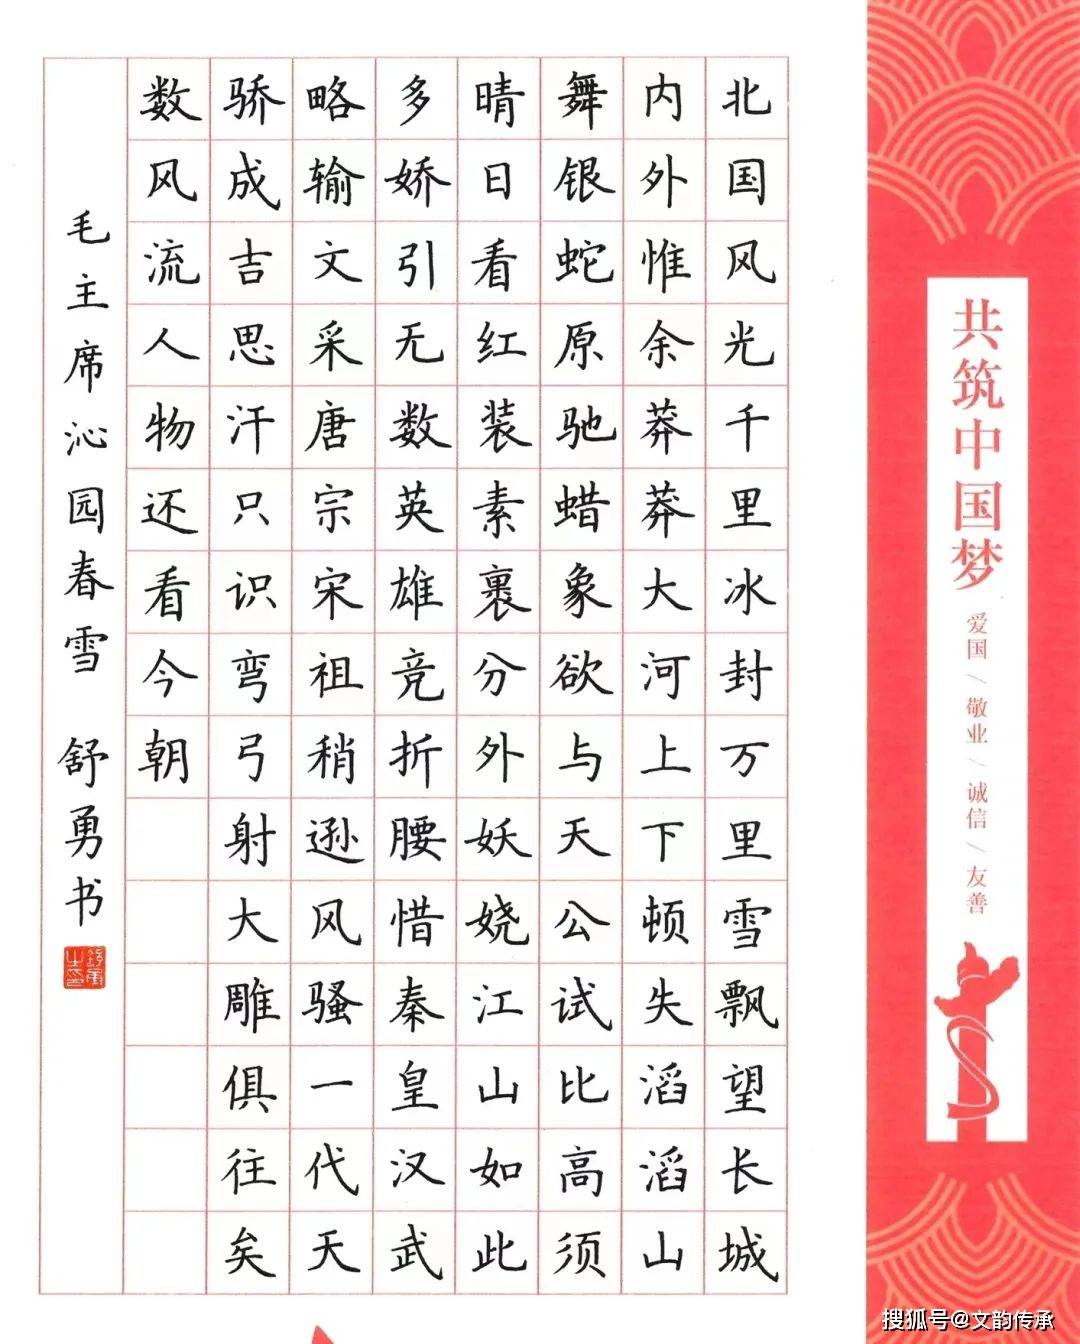 共筑中国梦
爱国/敬业/诚信/友善
北国风光千里冰封万里雪飘望长城
内外惟余莽莽大河上下顿失滔滔山
舞银蛇原驰蜡象欲与天公试比高须
晴日看红装素裹分外妖娆江山如此
多娇引无数英雄竞折腰惜秦皇汉武
略输文采唐宗宋祖稍逊风骚一代天
骄成吉思汗只识弯弓射大雕俱往矣
数风流人物还看今朝
毛主席沁园春雪 舒勇书
搜狐号@文韵传承